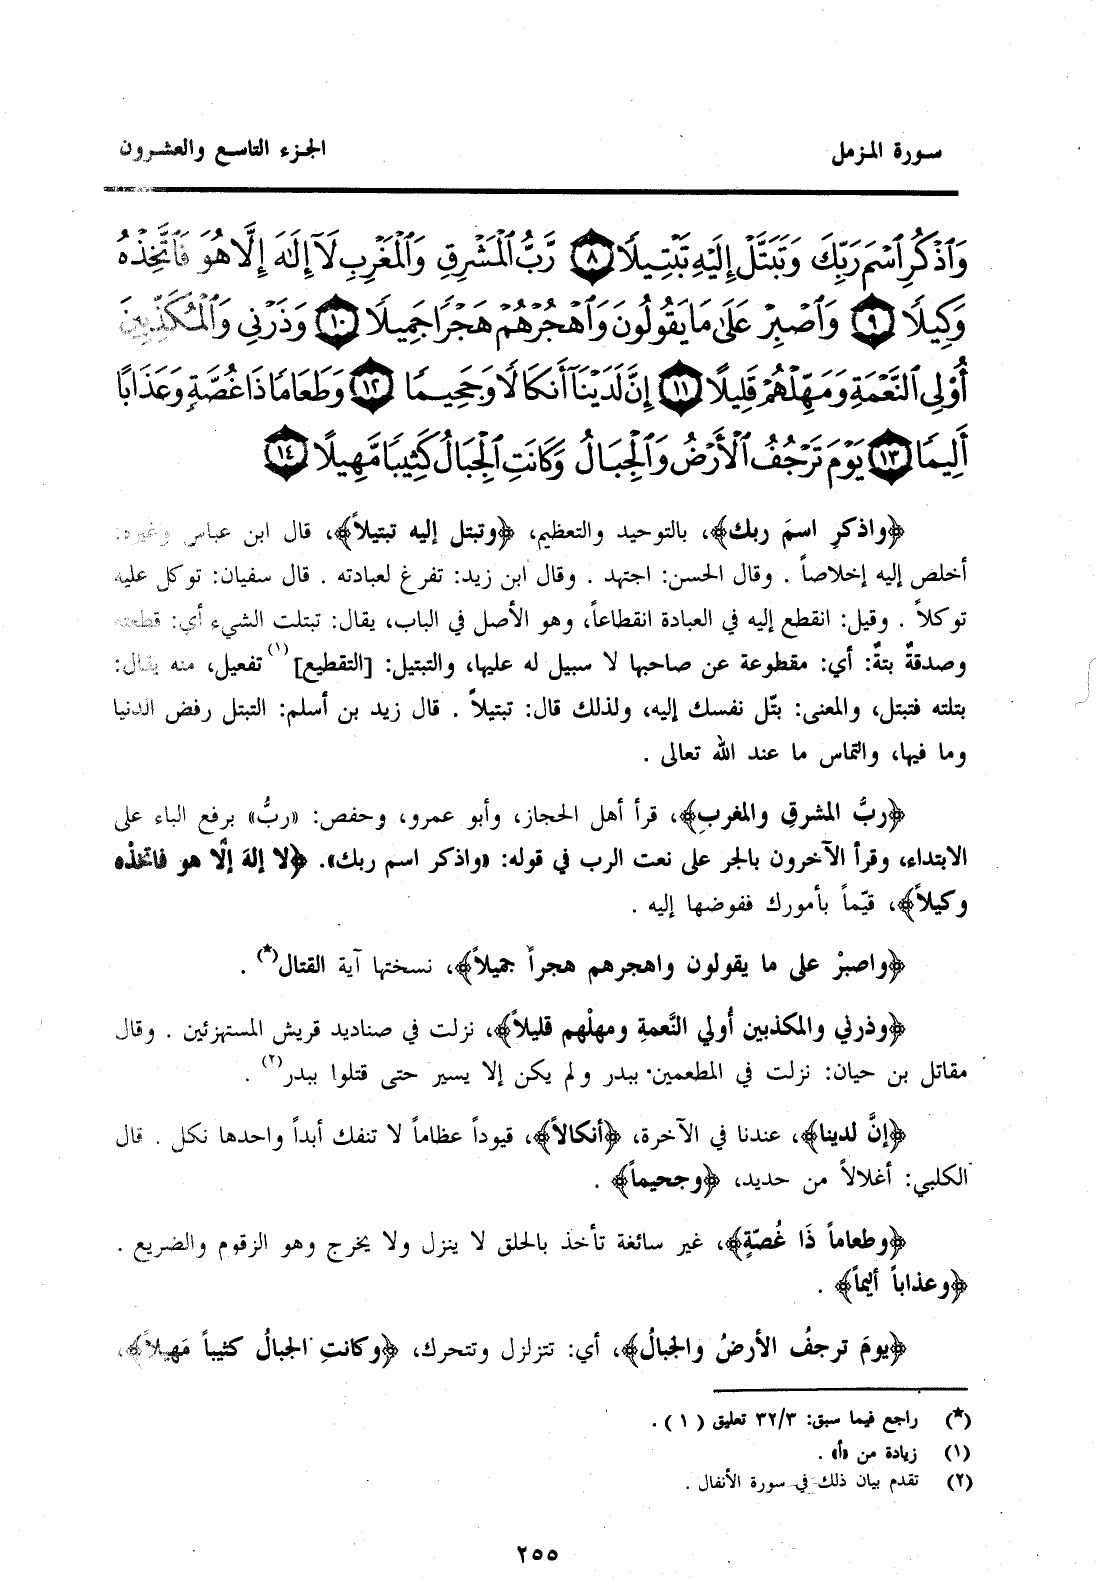 سورة المزمل
الجزء التاسع والعشرون
وَٱذْكُرِ ٱسْمَ رَبِّكَ وَتَبَتَّلْ إِلَيْهِ تَبْتِيلًا ٨ رَّبُّ ٱلْمَشْرِقِ وَٱلْمَغْرِبِ لَآ إِلَٰهَ إِلَّا هُوَ فَٱتَّخِذْهُ
وَكِيلًا ٩ وَٱصْبِرْ عَلَىٰ مَا يَقُولُونَ وَٱهْجُرْهُمْ هَجْرًا جَمِيلًا ١٠ وَذَرْنِي وَٱلْمُكَذِّبِينَ
أُوْلِي ٱلنَّعْمَةِ وَمَهِّلْهُمْ قَلِيلًا ١١ إِنَّ لَدَيْنَآ أَنكَالًا وَجَحِيمًا ١٢ وَطَعَامًا ذَا غُصَّةٍ وَعَذَابًا
أَلِيمًا ١٣ يَوْمَ تَرْجُفُ ٱلْأَرْضُ وَٱلْجِبَالُ وَكَانَتِ ٱلْجِبَالُ كَثِيبًا مَّهِيلًا ١٤
﴿واذكرِ اسمَ ربك﴾، بالتوحيد والتعظيم، ﴿وتبتل إليه تبتيلاً﴾، قال ابن عباس وغيره:
أخلص إليه إخلاصاً . وقال الحسن: اجتهد . وقال ابن زيد: تفرغ لعبادته . قال سفيان: توكل عليه
توكلاً . وقيل: انقطع إليه في العبادة انقطاعاً، وهو الأصل في الباب، يقال: تبتلت الشيء أي: قطعته
وصدقةٌ بتةٌ: أي: مقطوعة عن صاحبها لا سبيل له عليها، والتبتيل: [التقطيع](١) تفعيل، منه يقال:
بتلته فتبتل، والمعنى: بتّل نفسك إليه، ولذلك قال: تبتيلاً . قال زيد بن أسلم: التبتل رفض الدنيا
وما فيها، والتماس ما عند الله تعالى .
﴿ربُّ المشرقِ والمغربِ﴾، قرأ أهل الحجاز، وأبو عمرو، وحفص: «ربُّ» برفع الباء على
الابتداء، وقرأ الآخرون بالجر على نعت الرب في قوله: «واذكر اسم ربك». ﴿لا إلهَ إلّا هو فاتخذْه
وكيلاً﴾، قيّماً بأمورك ففوضها إليه .
﴿واصبرْ على ما يقولون واهجرهم هجراً جميلاً﴾، نسختها آية القتال(*) .
﴿وذرني والمكذبين أُولي النَّعمةِ ومهلْهم قليلاً﴾، نزلت في صناديد قريش المستهزئين . وقال
مقاتل بن حيان: نزلت في المطعمين ببدر ولم يكن إلا يسير حتى قتلوا ببدر(٢) .
﴿إنَّ لدينا﴾، عندنا في الآخرة، ﴿أنكالاً﴾، قيوداً عظاماً لا تنفك أبداً واحدها نكل . قال
الكلبي: أغلالاً من حديد، ﴿وجحيماً﴾ .
﴿وطعاماً ذَا غُصّةٍ﴾، غير سائغة تأخذ بالحلق لا ينزل ولا يخرج وهو الزقوم والضريع .
﴿وعذاباً أليماً﴾ .
﴿يومَ ترجفُ الأرضُ والجبالُ﴾، أي: تتزلزل وتتحرك، ﴿وكانتِ الجبالُ كثيباً مَهيلاً﴾،
(*) راجع فيما سبق: ٣٢/٣ تعليق (١) .
(١) زيادة من «أ» .
(٢) تقدم بيان ذلك في سورة الأنفال .
٢٥٥